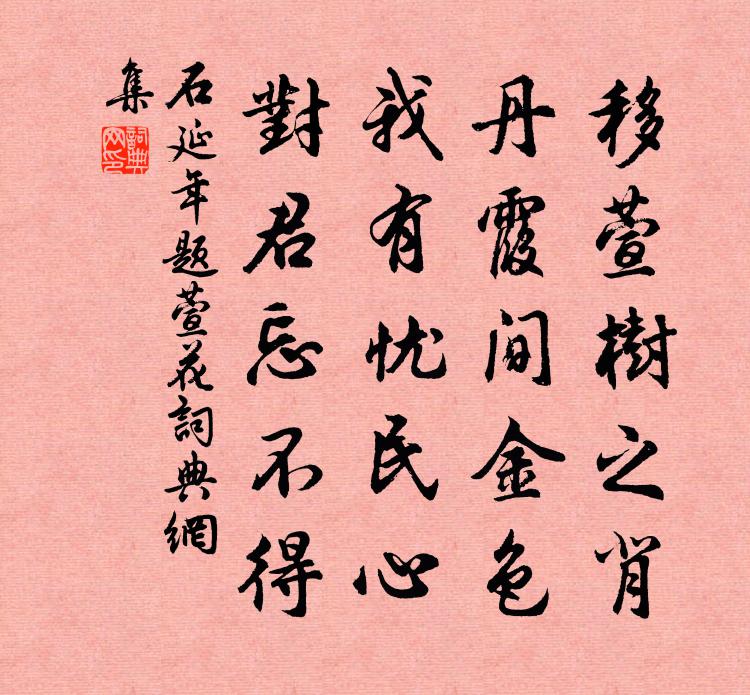 移萱樹之背
丹霞間金色
我有忧民心
對君忘不得
石延年題萱花詞典網
集
詞典網印